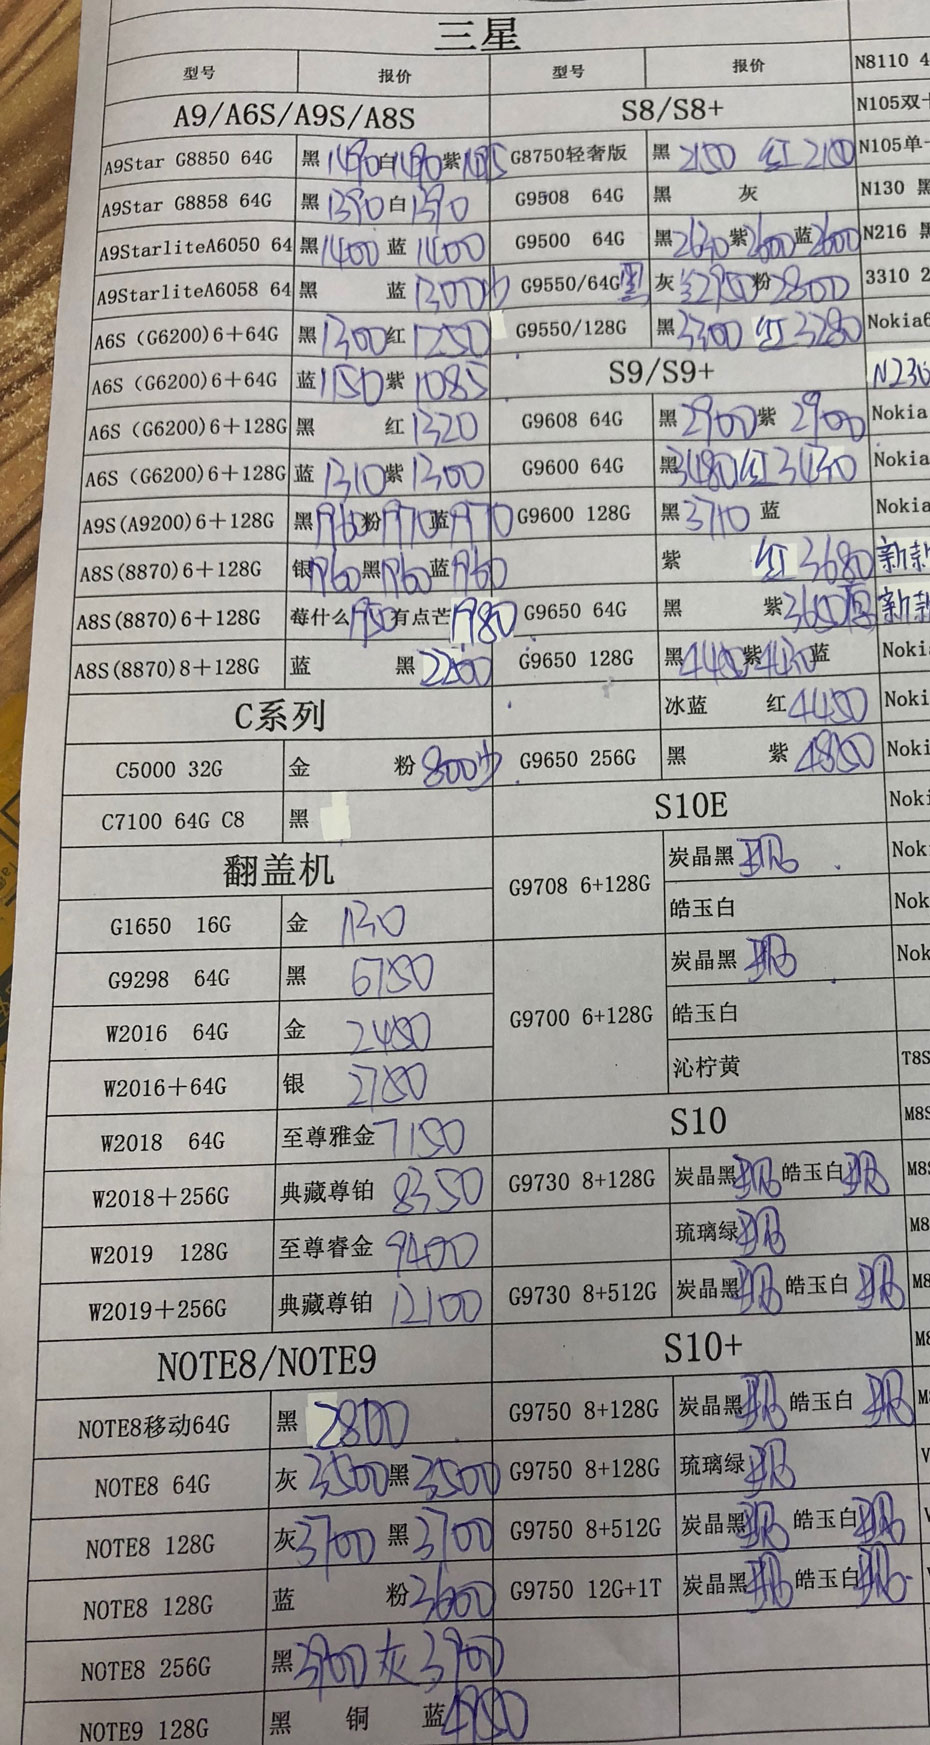 三星
型号 报价 型号 报价 N8110 4
A9/A6S/A9S/A8S S8/S8+ N105双卡
A9Star G8850 64G 黑1490白1490紫1495 G8750轻奢版 黑 2150 红 2100 N105单卡
A9Star G8858 64G 黑1390白1390 G9508 64G 黑 灰 N130 黑
A9StarliteA6050 64 黑1400 蓝 1400 G9500 64G 黑2630紫2600蓝2600 N216 黑
A9StarliteA6058 64 黑 蓝1300少 G9550/64G 灰 2950粉2800 3310 2
A6S (G6200)6+64G 黑1300红1250 G9550/128G 黑3300 红3280 Nokia6
A6S (G6200)6+64G 蓝1150紫1085 S9/S9+ N230
A6S (G6200)6+128G 黑 红1320 G9608 64G 黑2900紫 2900 Nokia
A6S (G6200)6+128G 蓝1310紫1300 G9600 64G 黑3480红3430 Nokia
A9S(A9200)6+128G 黑1960粉1970蓝1970 G9600 128G 黑3710 蓝 Nokia
A8S(8870)6+128G 银1960黑1960蓝1960 紫 红3680 新款
A8S(8870)6+128G 莓什么1950有点芒1980 G9650 64G 黑 紫3650 新款
A8S(8870)8+128G 蓝 黑2200 G9650 128G 黑4450紫4430蓝 Noki
C系列 冰蓝 红4450 Noki
C5000 32G 金 粉800少 G9650 256G 黑 紫4800 Noki
C7100 64G C8 黑 S10E Noki
翻盖机 G9708 6+128G 炭晶黑 Nok
G1650 16G 金 130 皓玉白 Nok
G9298 64G 黑 6750 G9700 6+128G 炭晶黑 Nok
W2016 64G 金 2450 皓玉白
W2016+64G 银 2780 沁柠黄 T8S
W2018 64G 至尊雅金7150 S10 M8S
W2018+256G 典藏尊铂 8350 G9730 8+128G 炭晶黑 皓玉白 M8S
W2019 128G 至尊睿金 9400 琉璃绿 M8
W2019+256G 典藏尊铂 12100 G9730 8+512G 炭晶黑 皓玉白 M8
NOTE8/NOTE9 S10+ M8
NOTE8移动64G 黑 2800 G9750 8+128G 炭晶黑 皓玉白
NOTE8 64G 灰 3500黑3500 G9750 8+128G 琉璃绿
NOTE8 128G 灰3700 黑3700 G9750 8+512G 炭晶黑 皓玉白
NOTE8 128G 蓝 粉3600 G9750 12G+1T 炭晶黑 皓玉白
NOTE8 256G 黑3900灰3900
NOTE9 128G 黑 铜 蓝4950